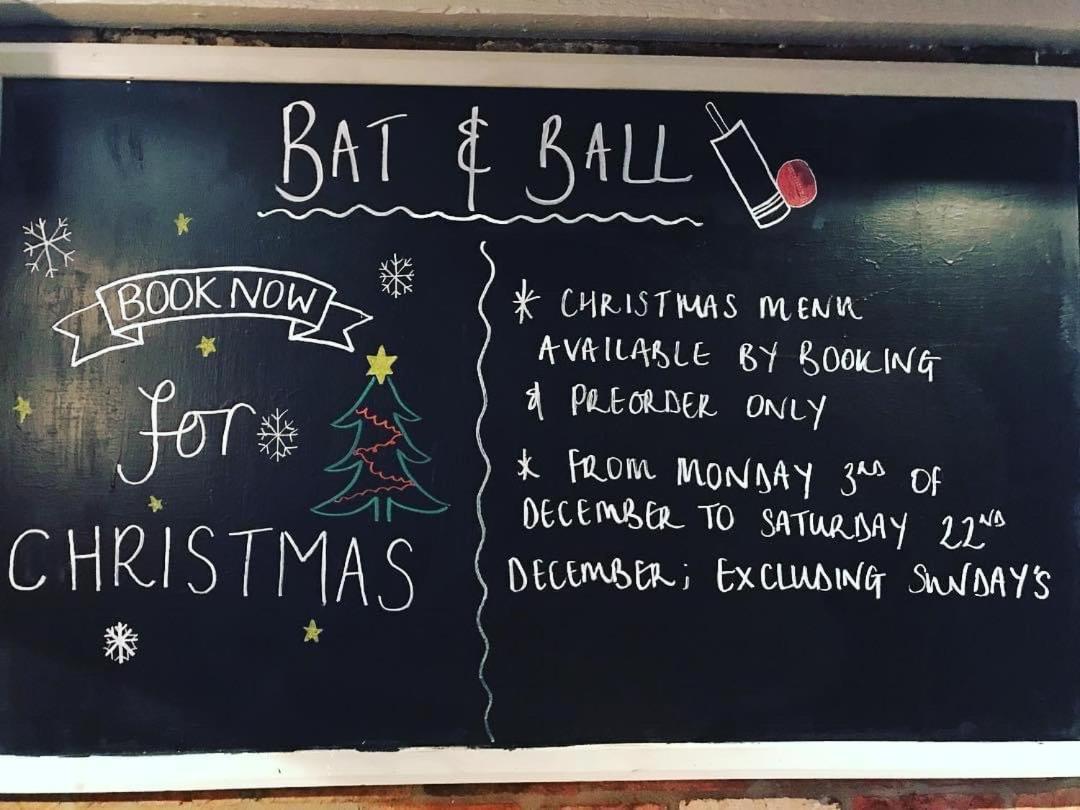 BAT & BALL
BOOK NOW
for
CHRISTMAS
* CHRISTMAS MENU
AVAILABLE BY BOOKING
& PREORDER ONLY
* FROM MONDAY 3RD OF
DECEMBER TO SATURDAY 22ND
DECEMBER; EXCLUDING SUNDAY'S